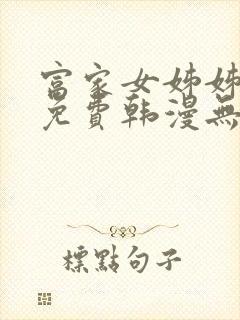 富家女姊姊
免費韩漫無
標點句子